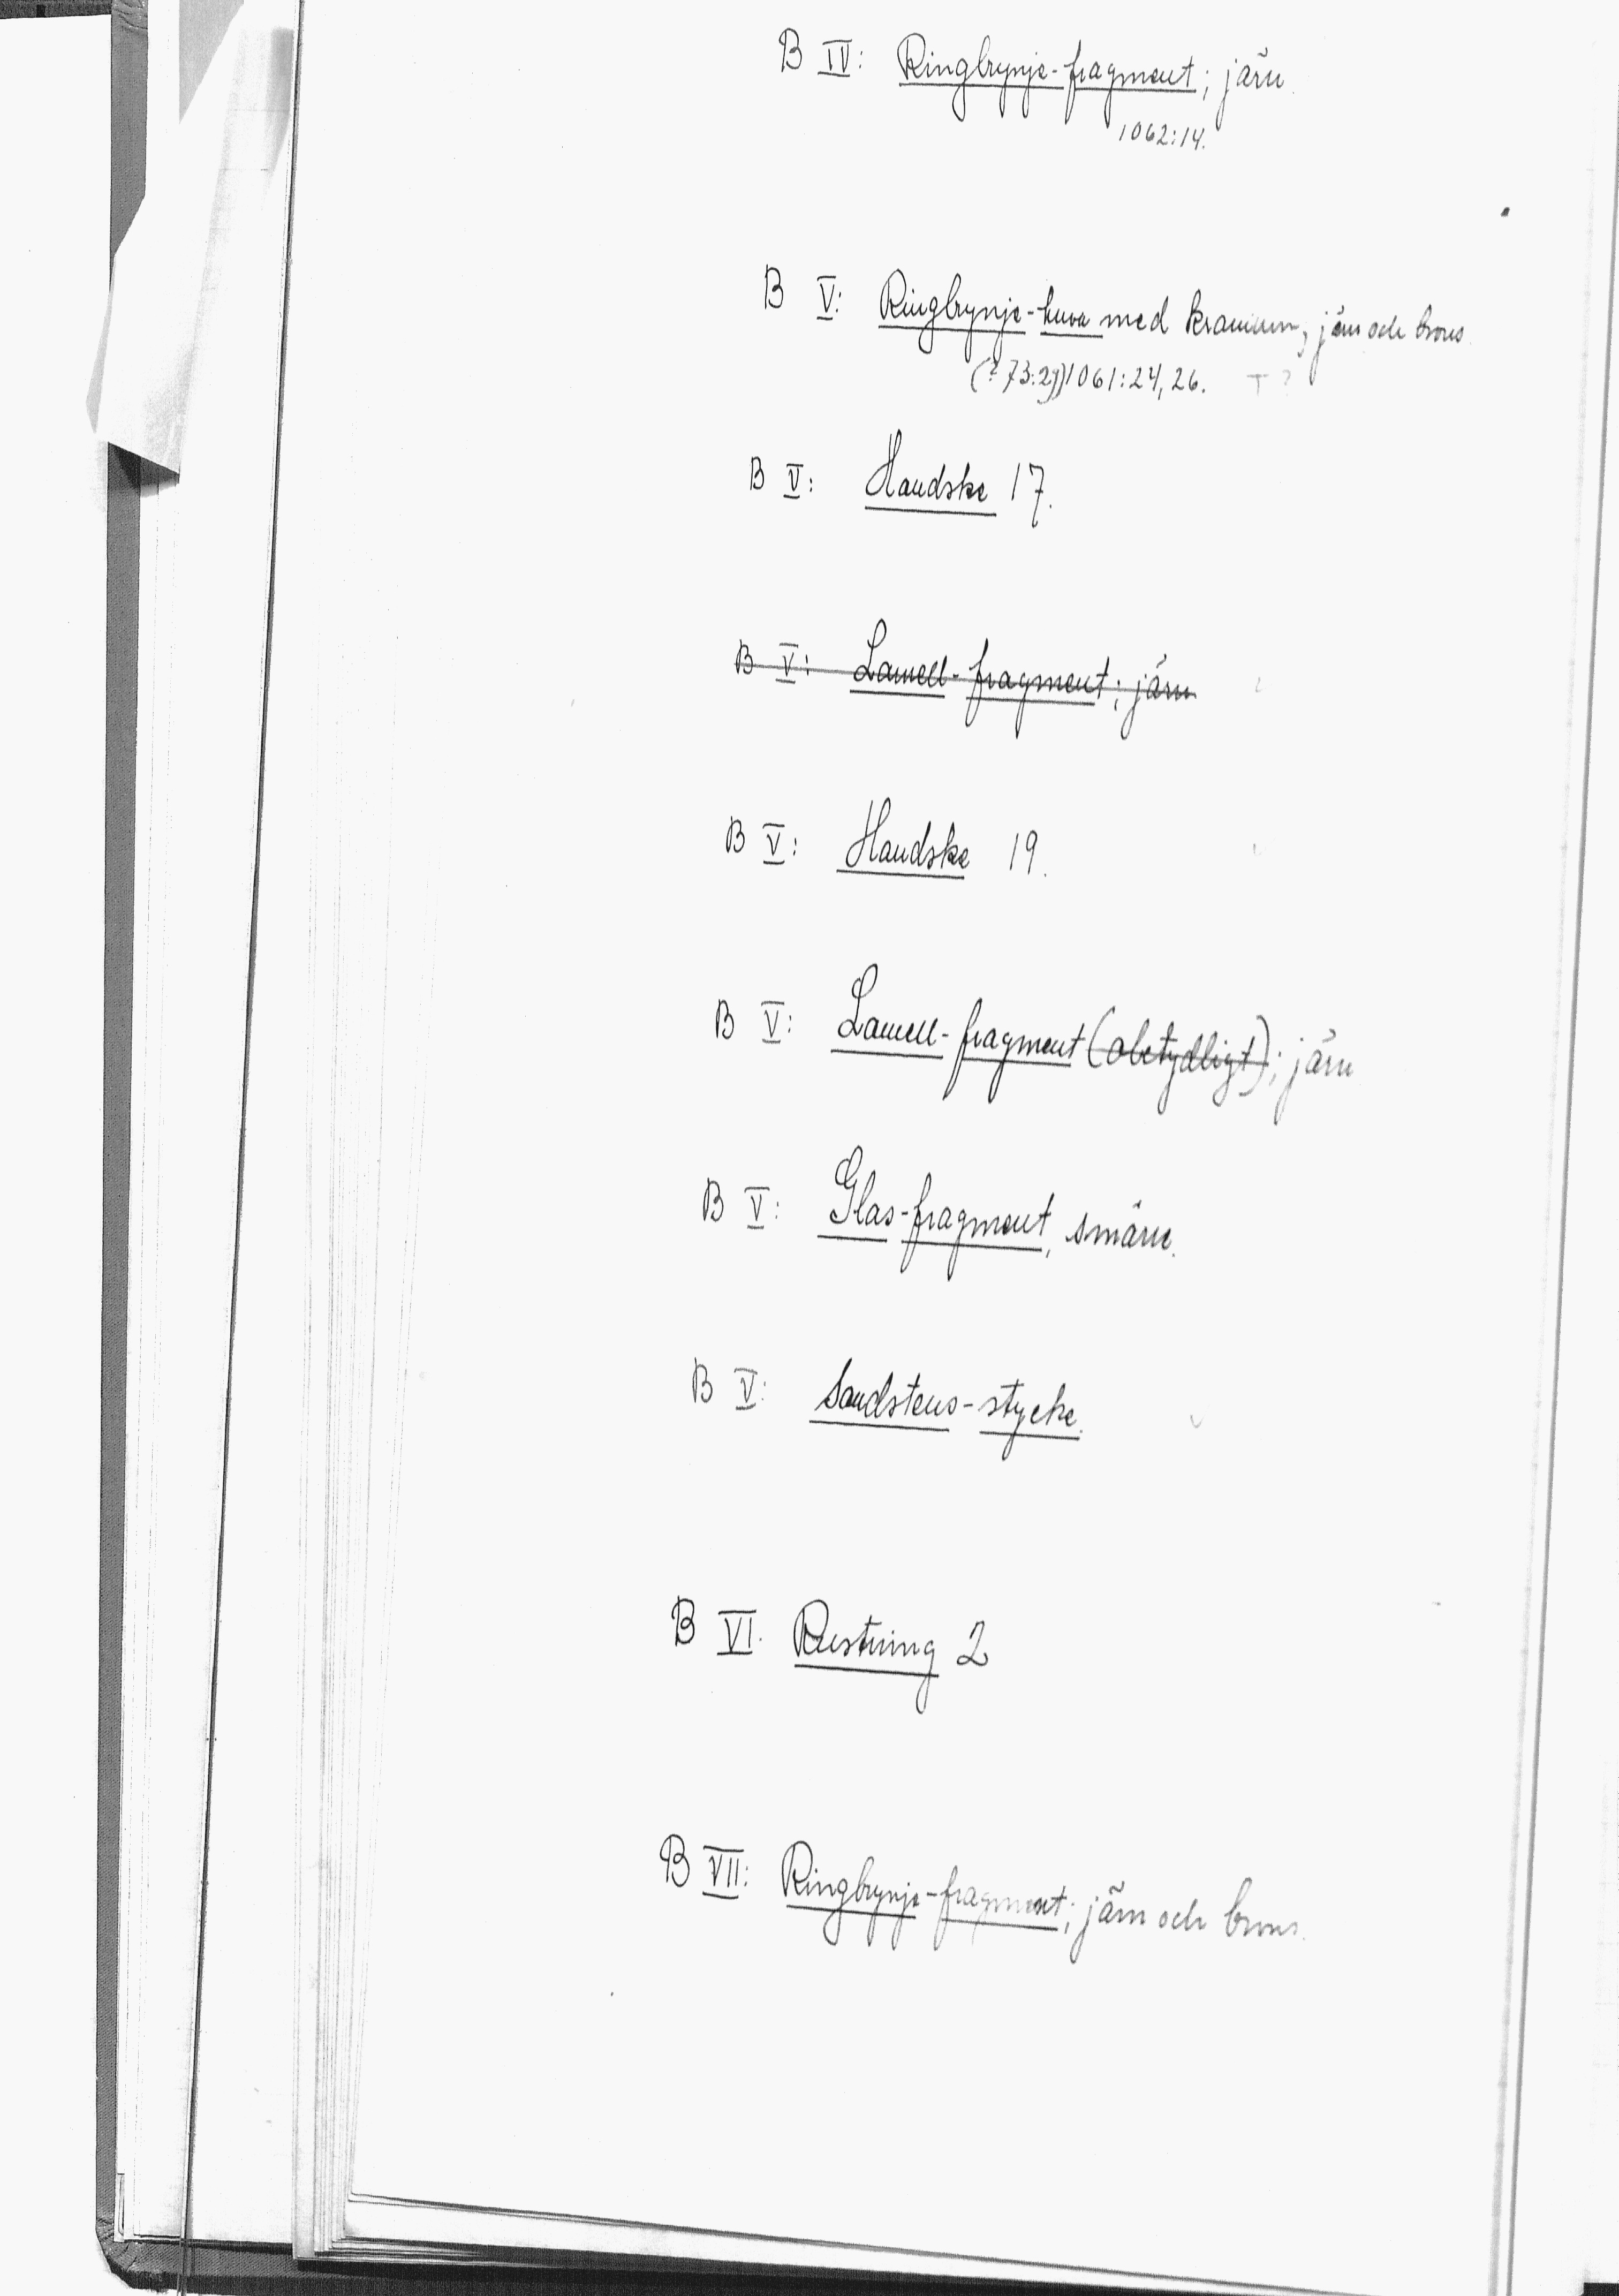 B IV: Ringbrynje-fragment; järn.
1062:14.
B V: Ringbrynje-huva med kranium, järn och brons.
(? 73:2j) 1061:24, 26. T ?
B V: Handske 17.
B V: Lamell-fragment; järn
B V: Handske 19.
B V: Lamell-fragment (obetydligt); järn
B V: Glas-fragment, smärre.
B V: Sandstens-stycke.
B VI. Rustning 2
B VII: Ringbrynje-fragment; järn och brons.